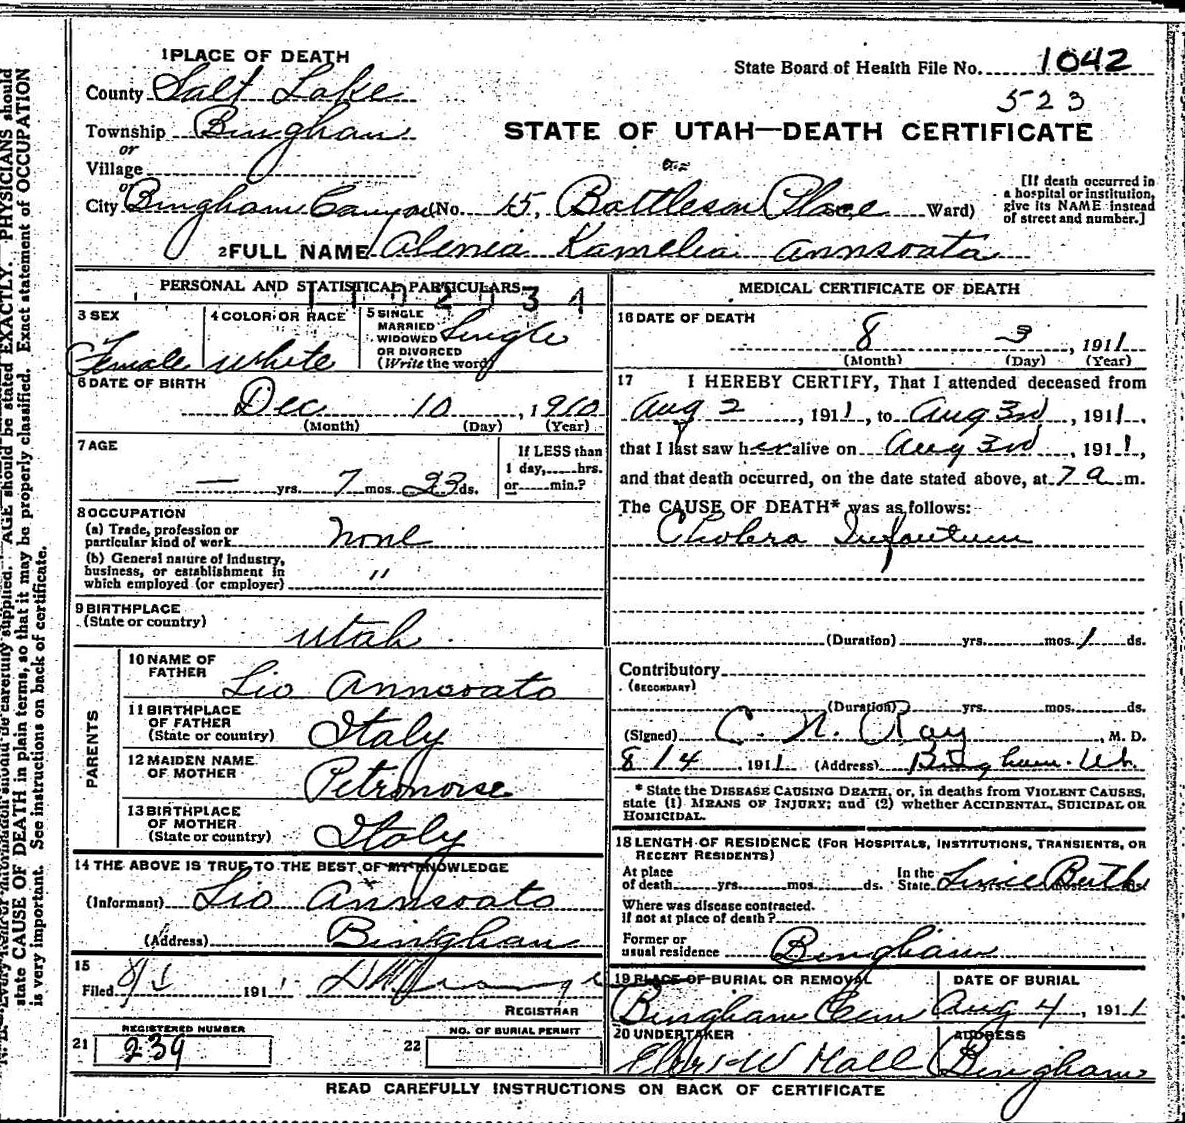 1 PLACE OF DEATH
State Board of Health File No. 1042
523
County Salt Lake
Township Bingham
or
STATE OF UTAH—DEATH CERTIFICATE
Village
or
City Bingham Canyon (No. 15, Battleson Place Ward)
[If death occurred in
a hospital or institution,
give its NAME instead
of street and number.]
2 FULL NAME Alenia Kamelia Annsoata
PERSONAL AND STATISTICAL PARTICULARS
3 SEX
Female
4 COLOR OR RACE
white
5 SINGLE
MARRIED
WIDOWED
OR DIVORCED
(Write the word)
Single
6 DATE OF BIRTH
Dec 10, 1910
(Month) (Day) (Year)
7 AGE
— yrs. 7 mos. 23 ds.
If LESS than
1 day,.....hrs.
or.....min.?
8 OCCUPATION
(a) Trade, profession or
particular kind of work none
(b) General nature of industry,
business, or establishment in
which employed (or employer) "
9 BIRTHPLACE
(State or country)
Utah
PARENTS
10 NAME OF
FATHER
Lio Annsoato
11 BIRTHPLACE
OF FATHER
(State or country)
Italy
12 MAIDEN NAME
OF MOTHER
Petronoise
13 BIRTHPLACE
OF MOTHER
(State or country)
Italy
14 THE ABOVE IS TRUE TO THE BEST OF MY KNOWLEDGE
(Informant) Lio Annsoato
(Address) Bingham
15
Filed 191
REGISTRAR
REGISTERED NUMBER
21 239
NO. OF BURIAL PERMIT
22
MEDICAL CERTIFICATE OF DEATH
16 DATE OF DEATH
8 3, 1911
(Month) (Day) (Year)
17 I HEREBY CERTIFY, That I attended deceased from
Aug 2, 1911, to Aug 3rd, 1911,
that I last saw her alive on Aug 3rd, 1911,
and that death occurred, on the date stated above, at 7 a m.
The CAUSE OF DEATH* was as follows:
Cholera Infantum
(Duration) yrs. mos. 1 ds.
Contributory
(SECONDARY)
(Duration) yrs. mos. ds.
(Signed) C. N. Ray, M. D.
8/4, 1911 (Address) Bingham. Ut.
* State the DISEASE CAUSING DEATH, or, in deaths from VIOLENT CAUSES,
state (1) MEANS OF INJURY; and (2) whether ACCIDENTAL, SUICIDAL OR
HOMICIDAL.
18 LENGTH OF RESIDENCE (FOR HOSPITALS, INSTITUTIONS, TRANSIENTS, OR
RECENT RESIDENTS)
At place
of death yrs. mos. ds.
In the
State Since Birth
Where was disease contracted.
if not at place of death?
Former or
usual residence Bingham
19 PLACE OF BURIAL OR REMOVAL
Bingham Cem
DATE OF BURIAL
Aug 4, 1911
20 UNDERTAKER
W Hall
ADDRESS
Bingham
READ CAREFULLY INSTRUCTIONS ON BACK OF CERTIFICATE
AGE should be stated EXACTLY. PHYSICIANS should
state CAUSE OF DEATH in plain terms, so that it may be properly classified. Exact statement of OCCUPATION
is very important. See instructions on back of certificate.